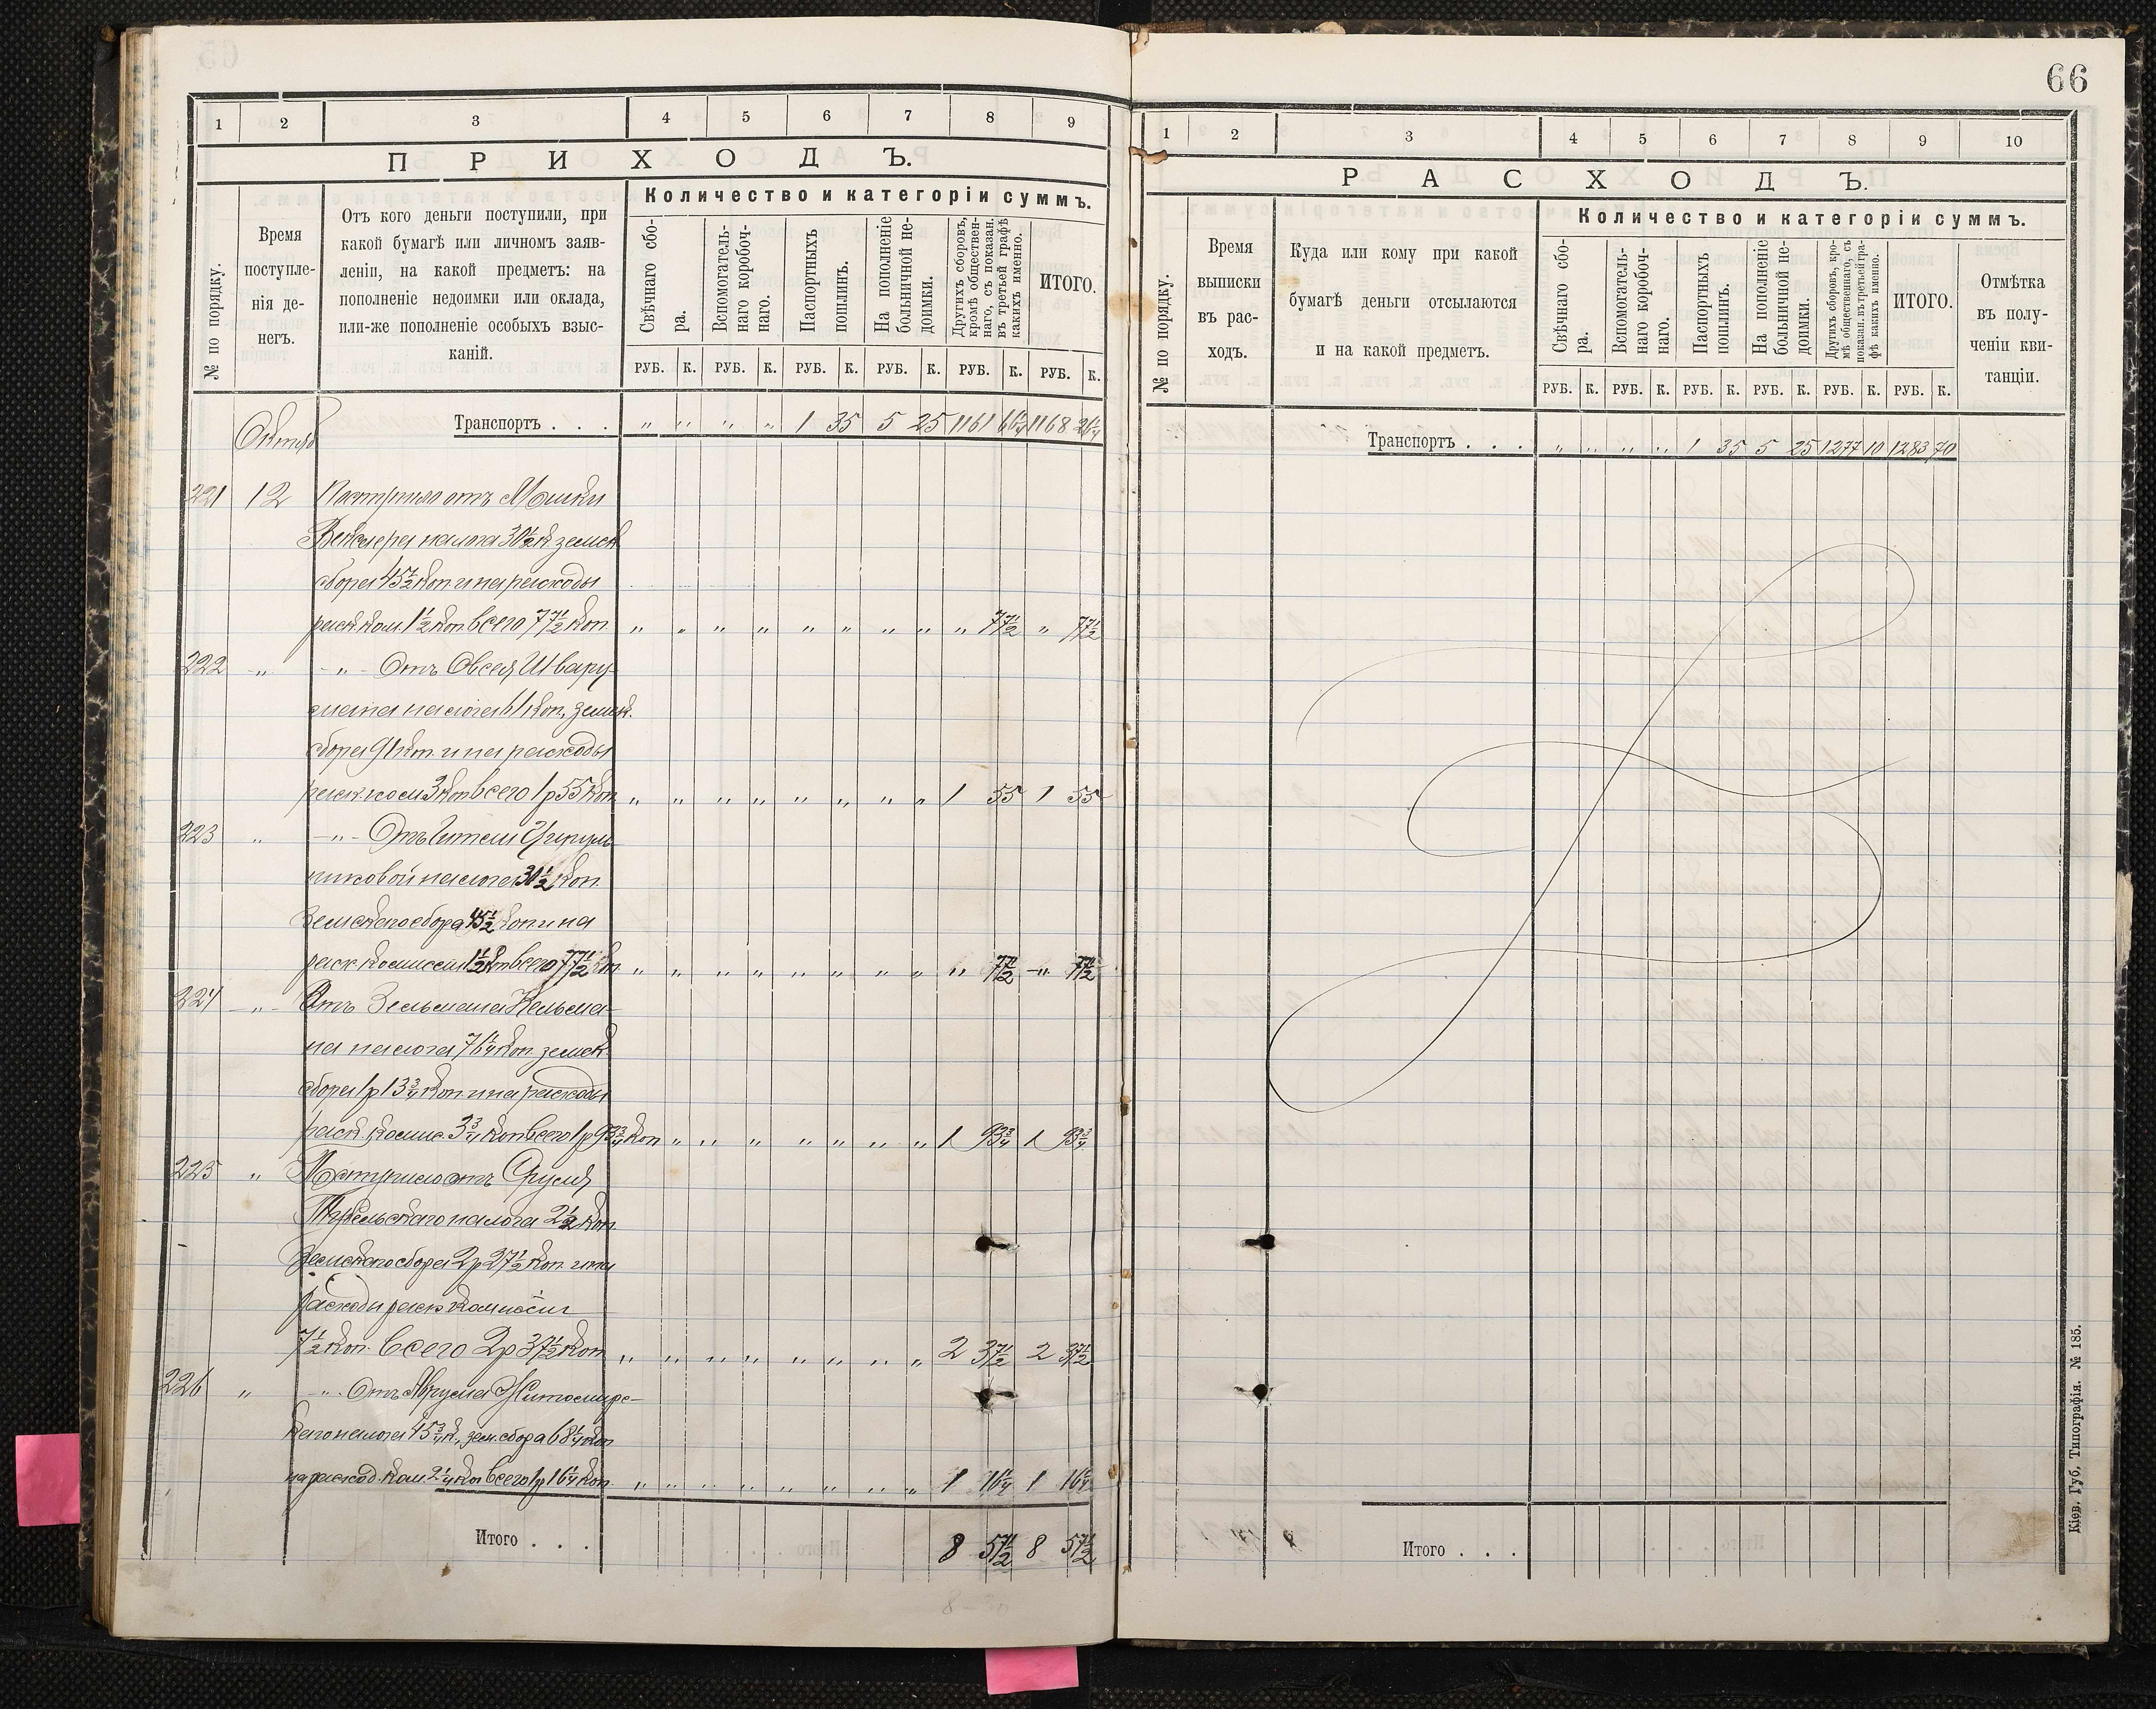 1 2 3 4 5 6 7 8 9
ПРИХОДЪ.
№ по порядку.
Время
поступле-
нія де-
негъ.
Отъ кого деньги поступили, при
какой бумагѣ или личномъ заяв-
леніи, на какой предметъ: на
пополненіе недоимки или оклада,
или-же пополненіе особыхъ взыс-
каній.
Количество и категоріи суммъ.
Свѣчнаго сбо-
ра.
Вспомогатель-
наго коробоч-
наго.
Паспортныхъ
пошлинъ.
На пополненіе
больничной не-
доимки.
Другихъ сборовъ,
кромѣ обществен-
наго, съ показан.
въ третьей графѣ
какихъ именно.
ИТОГО.
РУБ. К. РУБ. К. РУБ. К. РУБ. К. РУБ. К. РУБ. К.
Транспортъ . . . „ „ „ „ 1 35 5 25 1161 66¼ 1168 26¼
Октяб
221 12 Поступило отъ Мошки
налога 30½ к. земск
сбора 45½ коп и на расходы
раск. ком. 1½ коп всего 77½ коп „ „ „ „ „ „ „ „ „ 77½ „ 77½
222 -„- -„- Отъ Овсея Швару-
мана налога 61 коп., земск.
сбора 91 коп. и на расходы
раск. ком 3 коп всего 1 р 55 коп „ „ „ „ „ „ „ „ 1 55 1 55
223 „ -„- Отъ Гители Цируль-
никовой налога 30½ коп.
Земскаго сбора 45½ коп и на
раск комиссіи 1½ коп всего 77½ коп „ „ „ „ „ „ „ „ „ 77½ -„ 77½
224 -„- Отъ Зельмана Кельма-
на налога 76¼ коп. земск.
сбора 1 р 13¾ коп и на расходы
раск комис. 3¾ коп всего 1 р 93¾ коп „ „ „ „ „ „ „ 1 93¾ 1 93¾
225 „ Поступило отъ Сруля
налога 2½ коп
Земскаго сбора 2 р 27½ коп. и на
расходы раск комиссіи
7½ коп. всего 2 р 37½ коп „ „ „ „ „ „ „ „ 2 37½ 2 37½
226 „ -„- Отъ Аврума Житомирс-
каго налога 45¾ к., зем. сбора 68¼ коп
на расход. ком. 2¼ коп всего 1 р 16¼ коп „ „ „ „ „ „ „ „ 1 16¼ 1 16¼
Итого . . . 8 57½ 8 57½
66
1 2 3 4 5 6 7 8 9 10
РАСХОДЪ.
№ по порядку.
Время
выписки
въ рас-
ходъ.
Куда или кому при какой
бумагѣ деньги отсылаются
и на какой предметъ.
Количество и категоріи суммъ.
Свѣчнаго сбо-
ра.
Вспомогатель-
наго коробоч-
наго.
Паспортныхъ
пошлинъ.
На пополненіе
больничной не-
доимки.
Другихъ сборовъ, кро-
мѣ общественнаго, съ
показан. въ третьей гра-
фѣ какихъ именно.
ИТОГО.
Отмѣтка
въ полу-
ченіи кви-
танціи.
РУБ. К. РУБ. К. РУБ. К. РУБ. К. РУБ. К. РУБ. К.
Транспортъ . . . „ „ „ „ 1 35 5 25 1277 10 1283 70
Итого . . .
Кіев. Губ. Типографія. № 185.